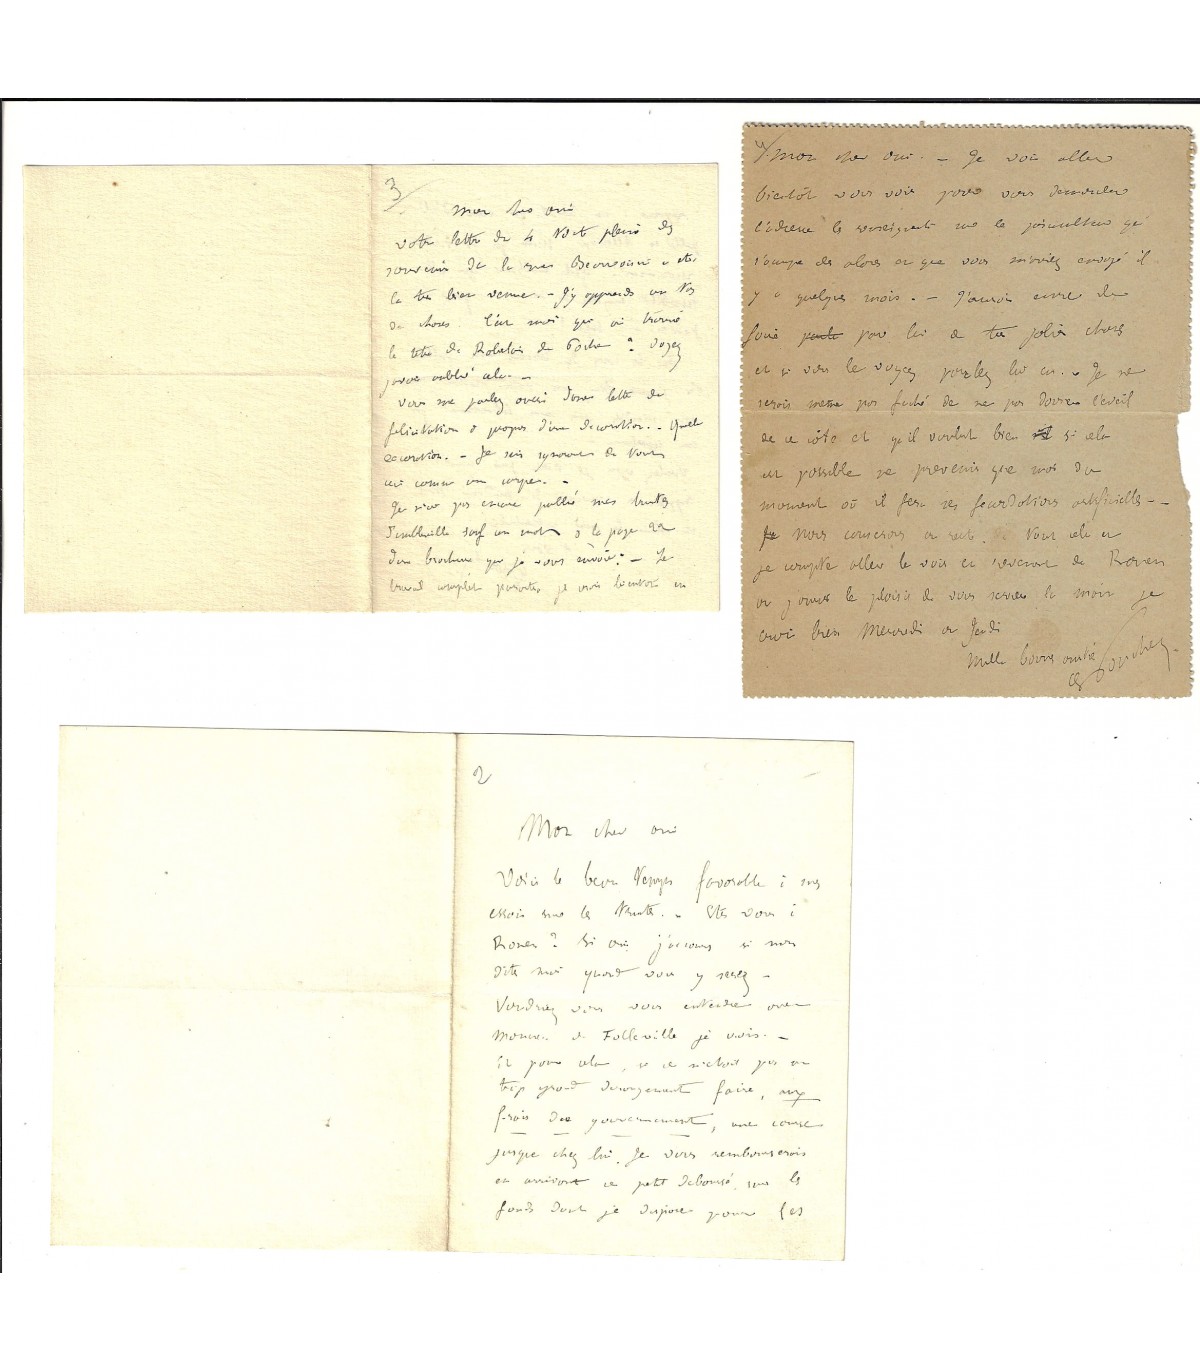 3/.
Mon cher ami
votre lettre du 4 Août pleine des
souvenirs de la
la très bien venue. - J'y apprends un tas
de choses. C'est moi qui ai trouvé
la tête de Rabelais de ? Voyez
j'avais oublié cela. -
Vous me parlez aussi d'une lettre de
félicitation à propos d'une décoration. - Quelle
décoration. - Je suis ignorant de tout
ceci comme une carpe. -
Je n'ai pas encore publié mes truites
sauf un mot à la page 22
d'une brochure que je vous envoie. - Le
travail complet paraîtra je crois bientôt en
4/. Mon cher ami. - Je vais aller
bientôt vous voir pour vous demander
l'adresse le renseignement sur le pisciculteur qui
s'occupe des aloses et que vous m'aviez envoyé il
y a quelques mois. - J'aurai envie de
faire pour lui de très jolies choses
et si vous le voyez parlez lui en. - Je ne
serais même pas fâché de ne pas donner l'éveil
de ce côté et qu'il voulut bien si cela
est possible me prévenir que moi du
moment où il fera ses fécondations artificielles -
Nous causerons du reste de tout cela et
je compte aller le voir en revenant de Rouen
où j'aurai le plaisir de vous serrer la main je
crois bien Mercredi ou Jeudi
Mille bonnes amitiés
G Pouchet
2
Mon cher ami
Voici le beau temps favorable à mes
essais sur les truites. - Etes vous à
Rouen? Si oui j'accours si non
dites moi quand vous y serez -
Voudriez vous vous entendre avec
Monsieur de Folleville je crois. -
Et pour cela, si ce n'était pas un
trop grand dérangement faire, aux
frais du gouvernement, une course
jusque chez lui. Je vous rembourserais
en arrivant ce petit déboursé sur les
fonds dont je dispose pour les